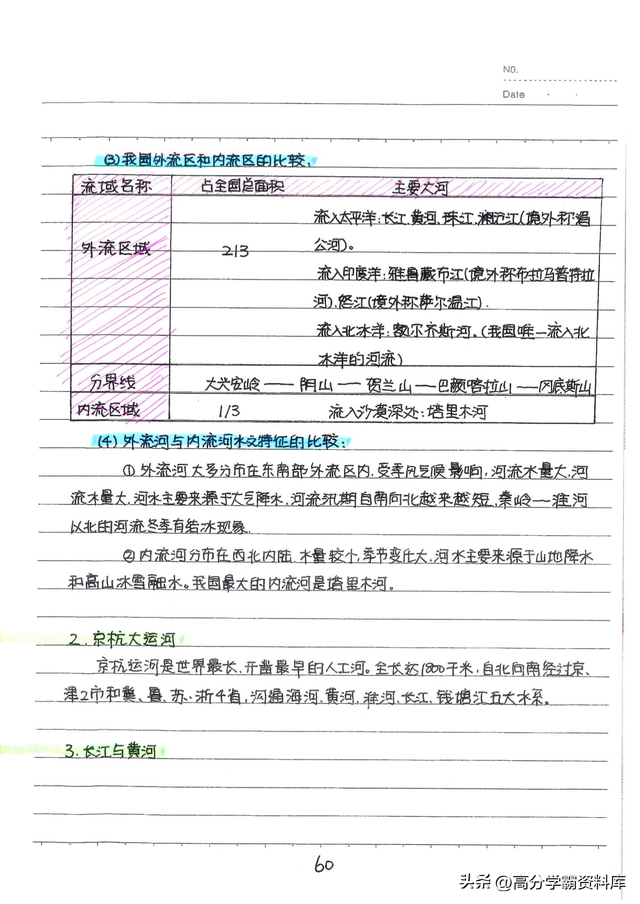 NO.
Date
(3)我国外流区和内流区的比较:
流域名称 占全国总面积 主要大河
外流区域 2/3 流入太平洋:长江、黄河、珠江、澜沧江(境外称湄
公河)。
流入印度洋:雅鲁藏布江(境外称布拉马普特拉
河)、怒江(境外称萨尔温江).
流入北冰洋:额尔齐斯河。(我国唯一流入北
冰洋的河流)
分界线 大兴安岭——阴山——贺兰山——巴颜喀拉山——冈底斯山
内流区域 1/3 流入沙漠深处:塔里木河
(4)外流河与内流河水文特征的比较:
①外流河大多分布在东南部外流区内.受季风气候影响,河流水量大.河
流水量大.河水主要来源于大气降水.河流汛期自南向北越来越短.秦岭—淮河
以北的河流冬季有结冰现象.
②内流河分布在西北内陆.水量较小,季节变化大.河水主要来源于山地降水
和高山冰雪融水。我国最大的内流河是塔里木河。
2.京杭大运河
京杭运河是世界最长、开凿最早的人工河。全长达1800千米,自北向南经过京、
津2市和冀、鲁、苏、浙4省,沟通海河、黄河、淮河、长江、钱塘江五大水系。
3.长江与黄河
60
头条 @高分学霸资料库